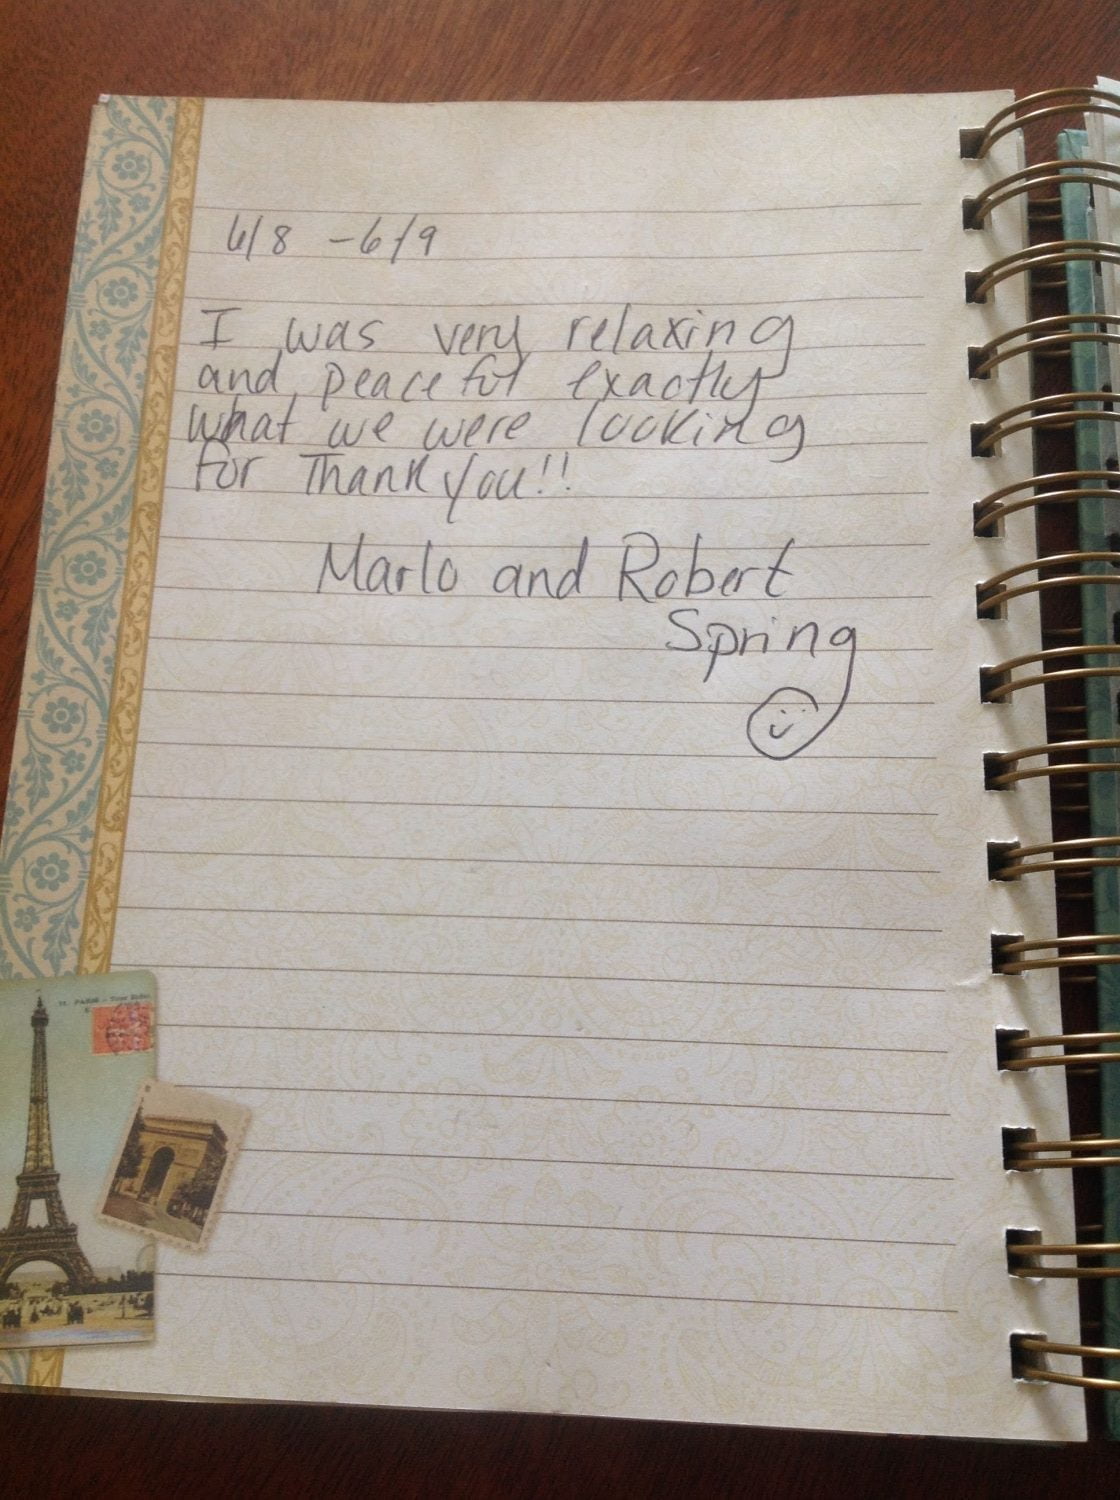 6/8 - 6/9
I was very relaxing
and peaceful exactly
what we were looking
for Thank you!!
Marlo and Robert
Spring
PARIS